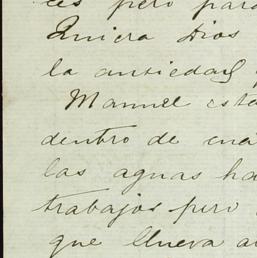 ces pero para
Quiera Dios
la ansiedad
Manuel está
dentro de cua
las aguas ha
trabajos pero
que llueva a